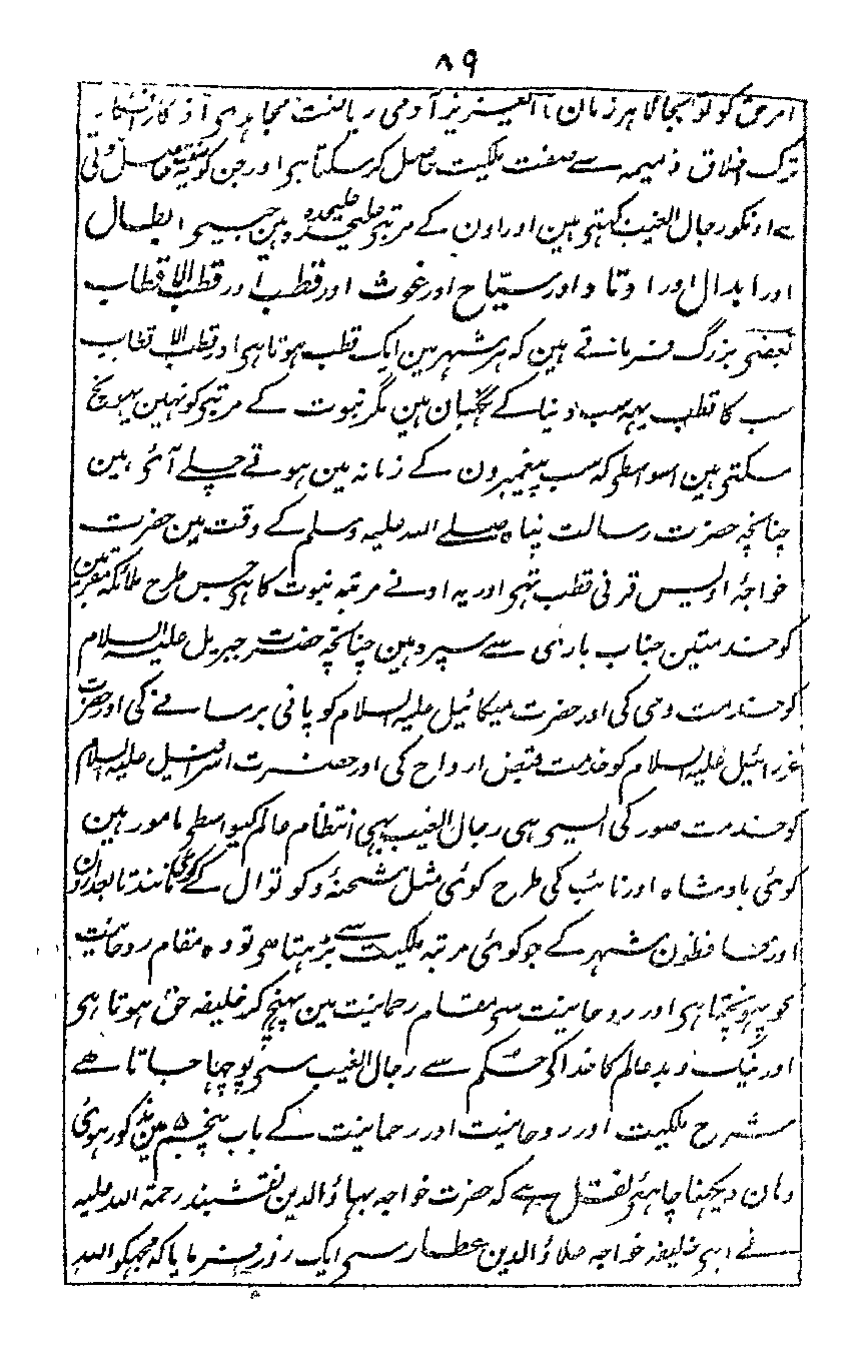 ۸۹
امر حق کو تو بجا لا ہر زمان ؛ العزیز آدمی ریاضت مجاہدہ اذکار افکار
ترک اخلاق ذمیمہ سے صفت ملکیت حاصل کر سکتا ہی اور جن کو یہ حاصل ہوتی
ہے اونکو رجال الغیب کہتی ہین اور اون کے مرتبی علیحدہ علیحدہ ہین جیسی ابطال
اور ابدال اور اوتاد اور سیّاح اور غوث اور قطب اور قطب الاقطاب
بعضی بزرگ فرماتے ہین کہ ہر شہر مین ایک قطب ہوتا ہی اور قطب الاقطاب
سب کا قطب یہہ سب دنیا کے نگہبان ہین مگر نبوت کے مرتبی کو نہین پہونچ
سکتی ہین اسواسطی کہ سب پیغمبرون کے زمانہ مین ہوتے چلے آئی ہین
چنانچہ حضرت رسالت پناہ صلے اللہ علیہ وسلم کے وقت مین حضرت
خواجۂ اویس قرنی قطب تہی اور یہ ادنے مرتبہ نبوت کا ہی جس طرح ملائکہ مقربین
کو خدمتین جناب باری سے سپرد ہین چنانچہ حضرت جبریل علیہ السلام
کو خدمت وحی کی اور حضرت میکائیل علیہ السلام کو پانی برسانے کی اور حضرت
عزرائیل علیہ السلام کو خدمت قبض ارواح کی اور حضرت اسرافیل علیہ السلام
کو خدمت صور کی ایسی ہی رجال الغیب بہی انتظام عالم کیواسطی مامور ہین
کوئی بادشاہ اور نائب کی طرح کوئی مثل شحنۂ و کوتوال کے کوئی مانند تابعداران
اور محافظون شہر کے جو کوئی مرتبہ ملکیت سے بڑہتا ہی تو وہ مقام روحانیت
کو پہونچتا ہی اور روحانیت سی مقام رحمانیت مین پہنچ کر خلیفہ حق ہوتا ہی
اور نیک و بد عالم کا خدا کی حکم سے رجال الغیب سی پوچہا جاتا ہے
شرح ملکیت اور روحانیت اور رحمانیت کے باب پنجم ۵ مین مذکور ہوئی
وہان دیکہنا چاہئی نقل ہے کہ حضرت خواجہ بہاؤالدین نقشبند رحمۃ اللہ علیہ
نے اپنی خلیفہ خواجہ علاؤالدین عطار سی ایک روز فرمایا کہ مجہکو اللہ